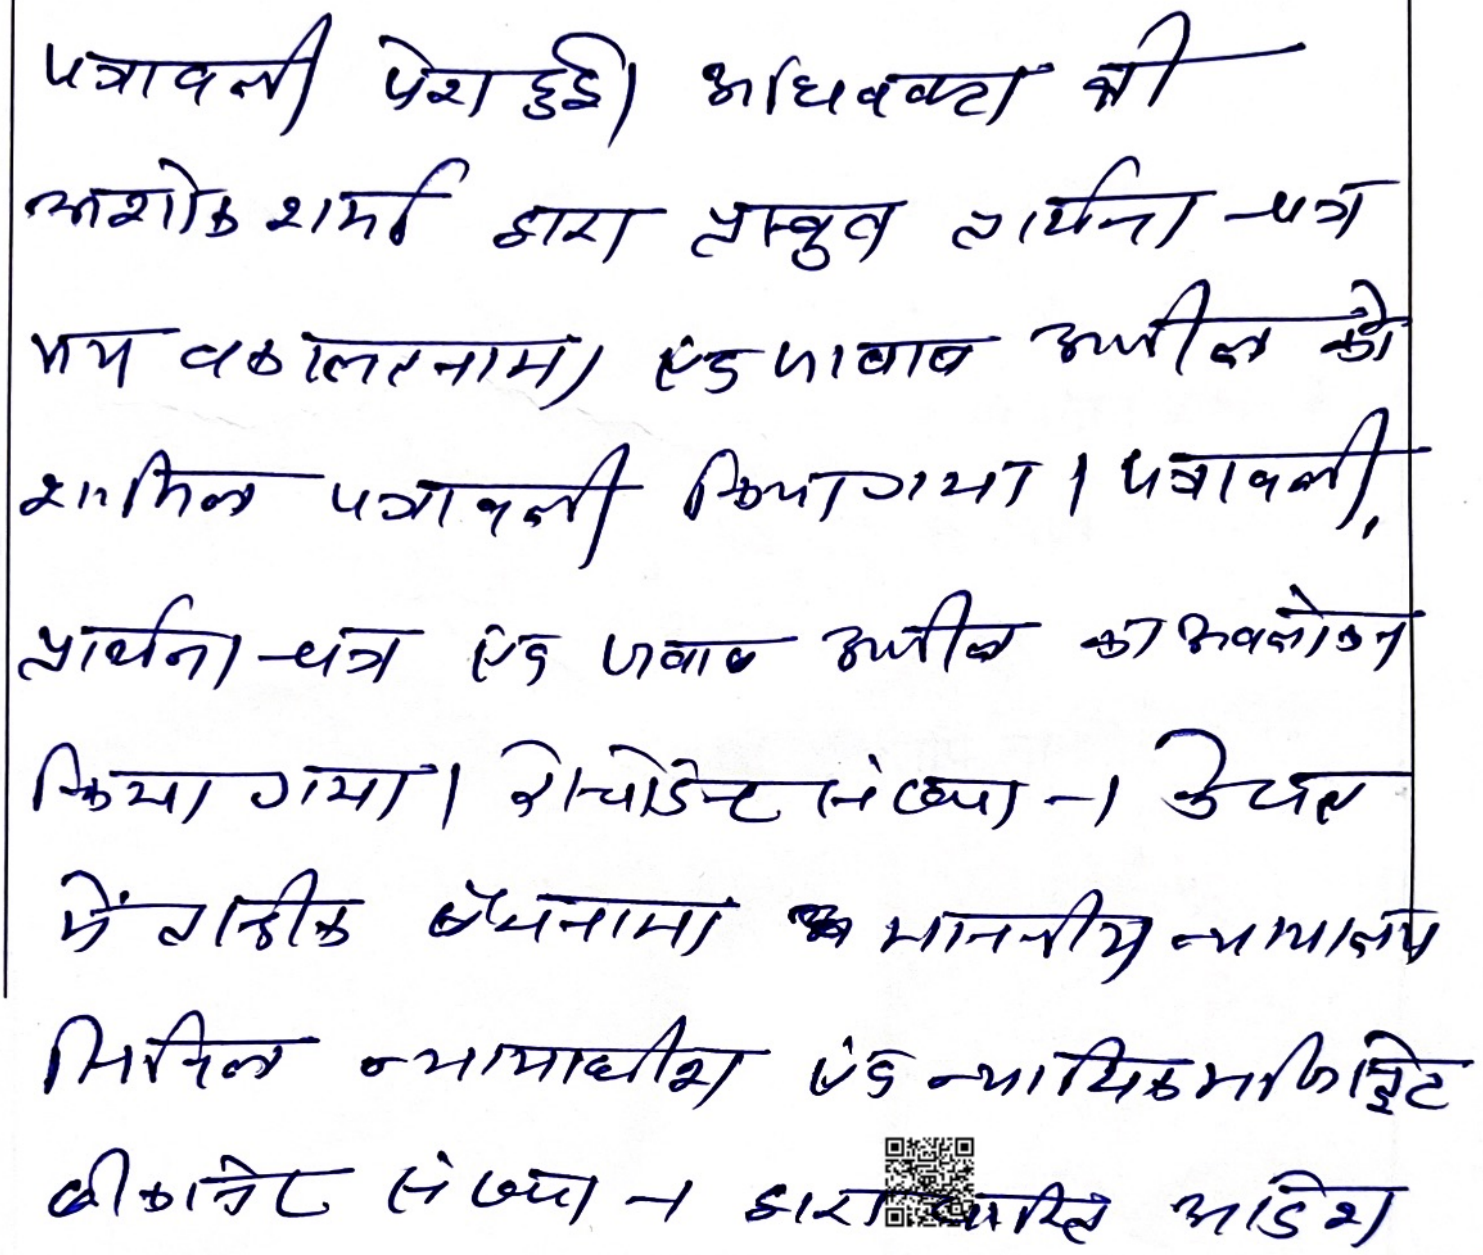 पत्रावली पेश हुई। अधिवक्ता श्री
अशोक शर्मा द्वारा प्रस्तुत प्रार्थना-पत्र
मय वकालतनामा एवं जवाब अपील को
शामिल पत्रावली किया गया। पत्रावली,
प्रार्थना-पत्र एवं जवाब अपील का अवलोकन
किया गया। रेस्पोडेन्ट संख्या-1 के पक्ष
में बैयनामा माननीय न्यायालय
सिविल न्यायाधीश एवं न्यायिक मजिस्ट्रेट
बीकानेर संख्या-1 द्वारा पारित आदेश